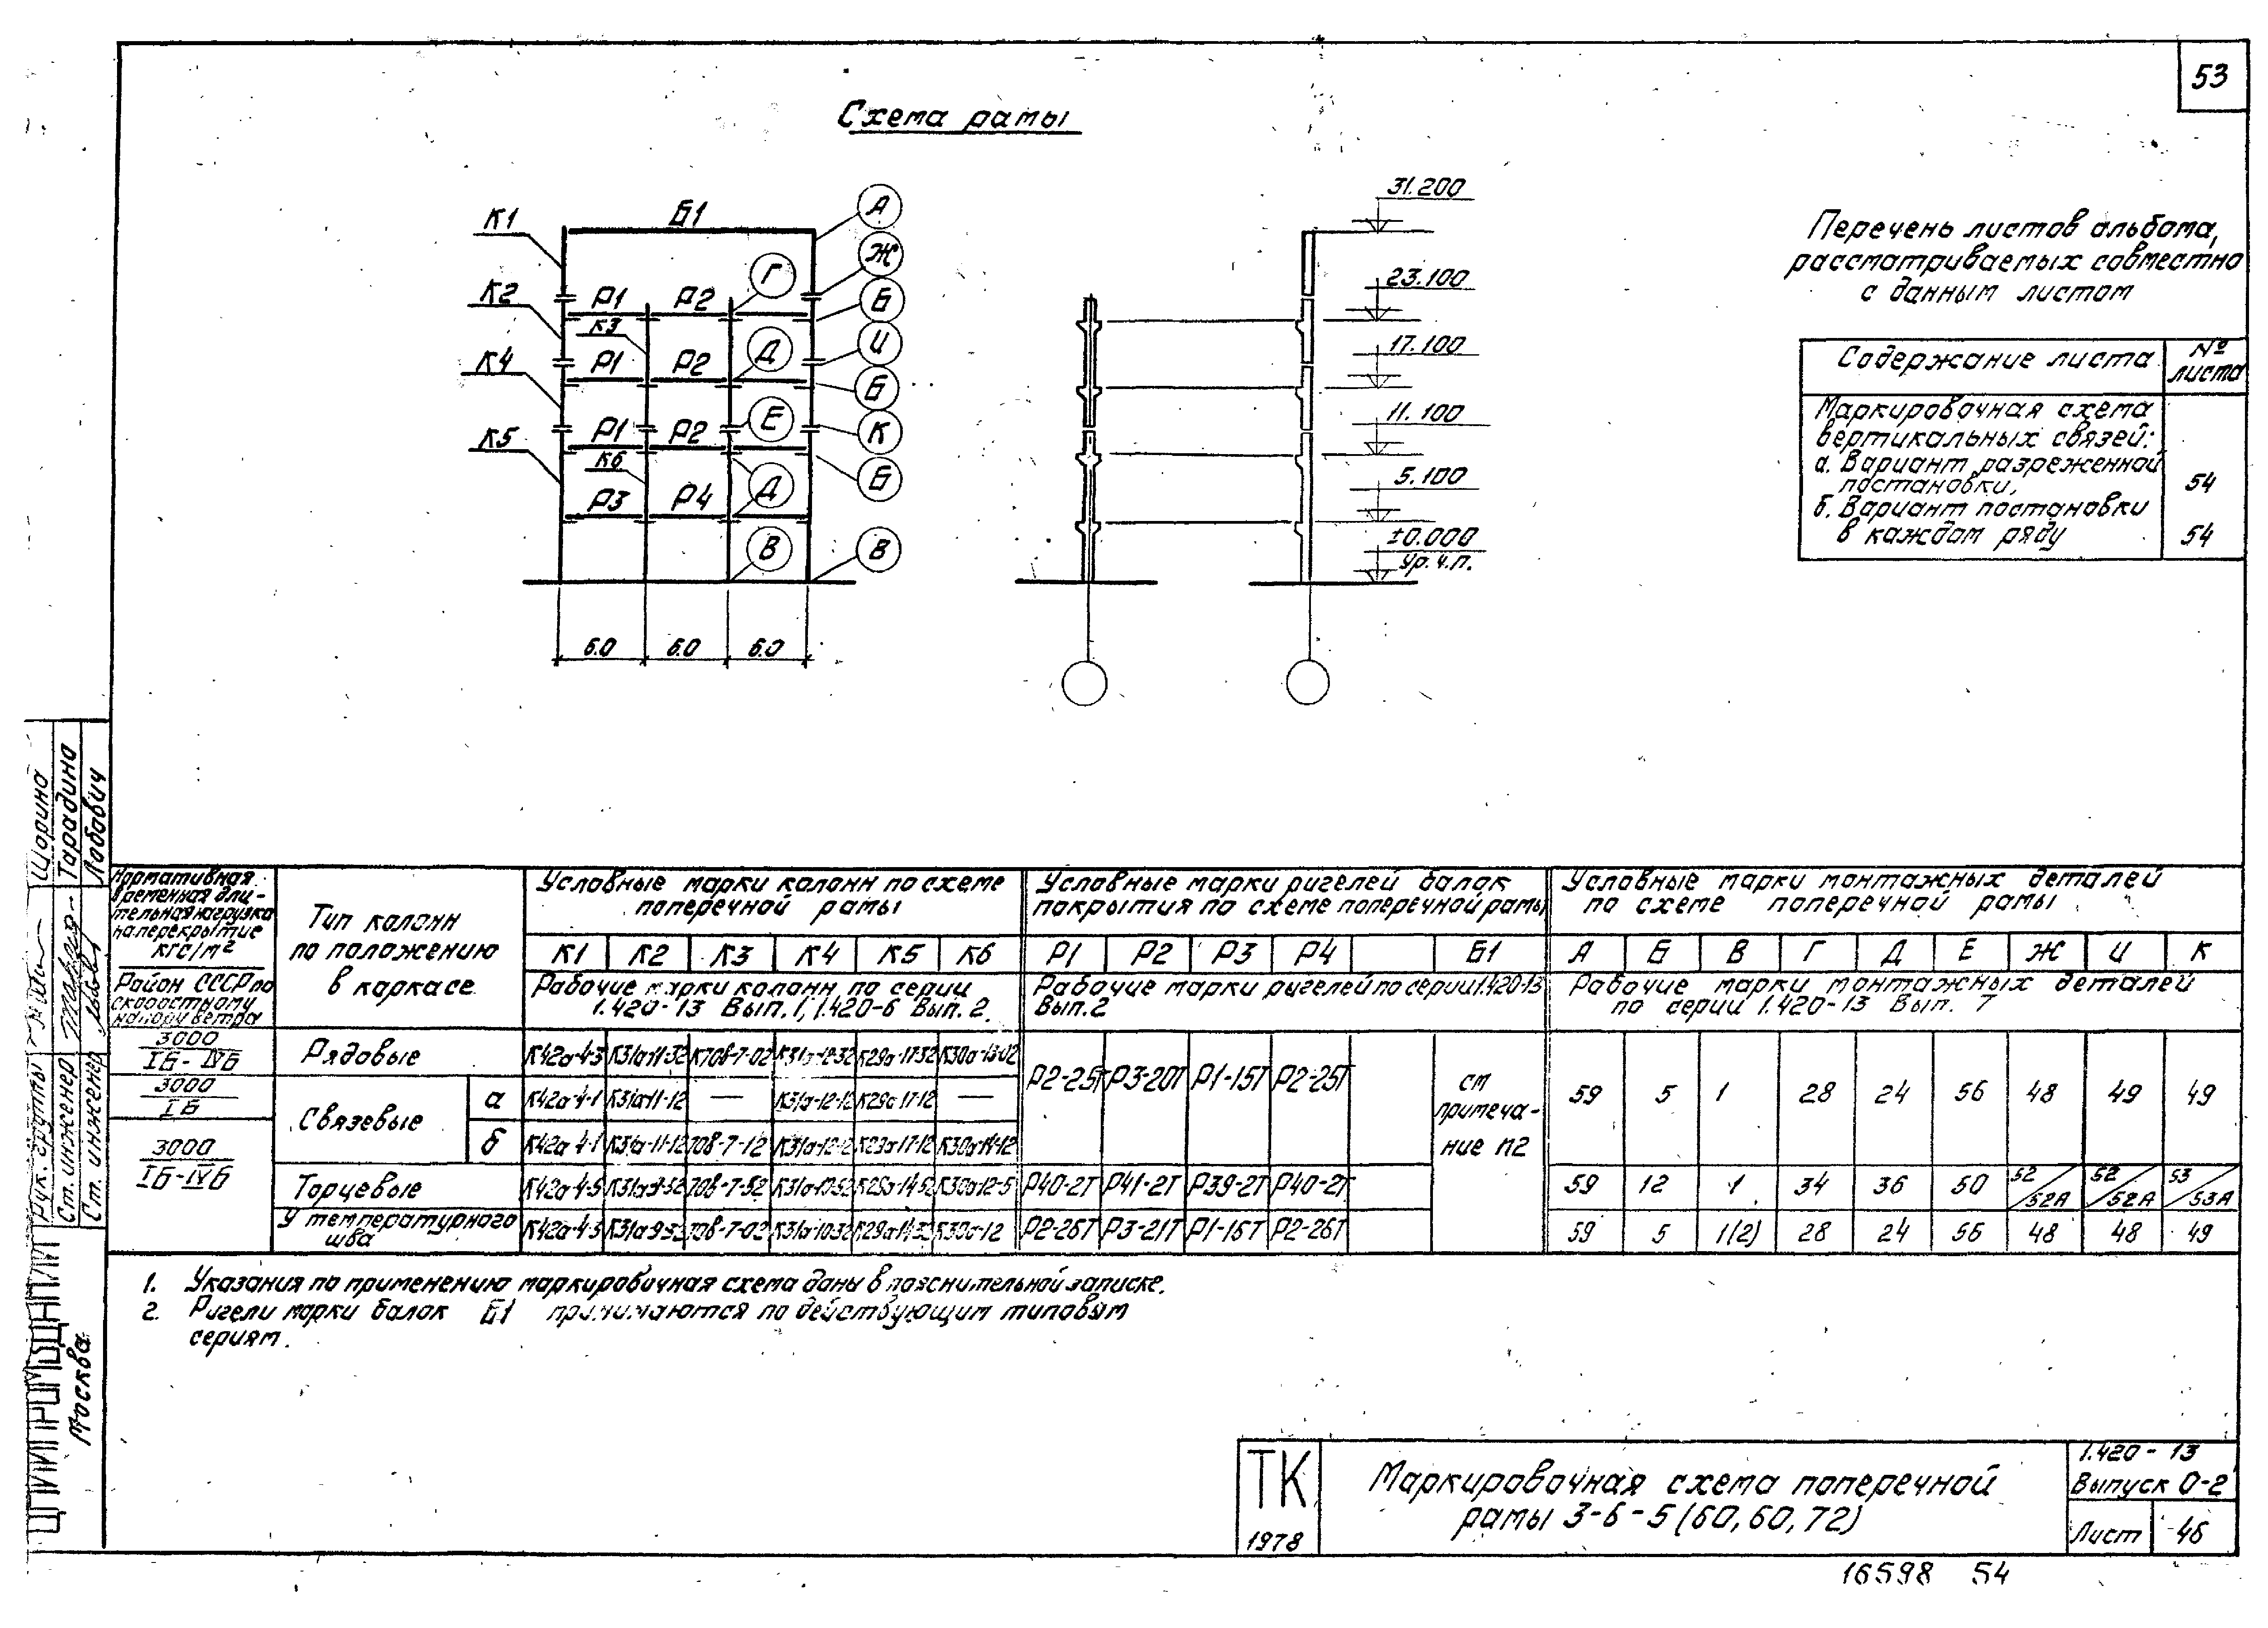 53
Схема рамы
К1
К2
К4
К5
Б1
Р1 Р2
К3
Р1 Р2
Р1 Р2
К6
Р3 Р4
А
Ж
Г
Б
И
Д
Б
Е
К
Б
Д
В
В
6.0 6.0 6.0
31.200
23.100
17.100
11.100
5.100
±0.000
Ур.ч.п.
Перечень листов альбома,
рассматриваемых совместно
с данным листом
Содержание листа
№
листа
Маркировочная схема
вертикальных связей:
а. Вариант разреженной
постановки,
54
б. Вариант постановки
в каждом ряду
54
Нормативная
временная дли-
тельная нагрузка
на перекрытие
кгс/м²
Район СССР по
скоростному
напору ветра
Тип колонн
по положению
в каркасе
Условные марки колонн по схеме
поперечной рамы
К1 К2 К3 К4 К5 К6
Рабочие марки колонн по серии
1.420-13 Вып.1, 1.420-6 Вып.2
Условные марки ригелей балок
покрытия по схеме поперечной рамы
Р1 Р2 Р3 Р4 Б1
Рабочие марки ригелей по серии 1.420-13
Вып.2
Условные марки монтажных деталей
по схеме поперечной рамы
А Б В Г Д Е Ж И К
Рабочие марки монтажных деталей
по серии 1.420-13 Вып. 7
3000
IБ-IVБ
Рядовые
К42а-4-3 К31а-11-32 К70в-7-02 К31а-12-32 К29а-17-32 К30а-13-02
3000
IБ
Связевые
а
К42а-4-1 К31а-11-12 — К31а-12-12 К29а-17-12 —
Р2-25Т Р3-20Т Р1-15Т Р2-25Т
см
примеча-
ние п2
59 5 1 28 24 56 48 49 49
3000
IБ-IVБ
б
К42а 4-1 К31а-11-12 70в-7-12 К31а-12-12 К29а17-12 К30а14-12
Торцевые
К42а-4-5 К31а-9-52 70в-7-52 К31а-10-52 К29а-14-52 К30а12-5
Р40-2Т Р41-2Т Р39-2Т Р40-2Т
59 12 1 34 36 50 52/52А 52/52А 53/53А
У температурного
шва
К42а-4-3 К31а-9-32 70в-7-02 К31а-10-32 К30а-12
Р2-26Т Р3-21Т Р1-16Т Р2-26Т
59 5 1(2) 28 24 56 48 48 49
1. Указания по применению маркировочная схема даны в пояснительной записке.
2. Ригели марки балок Б1 принимаются по действующим типовым
сериям.
ТК
1978
Маркировочная схема поперечной
рамы 3-6-5(60,60,72)
1.420-13
Выпуск 0-2
Лист 46
16598 54
Рук. группы Шорина
Ст. инженер Тарадина
Ст. инженер Лабович
ЦНИИПРОМЗДАНИЙ
Москва